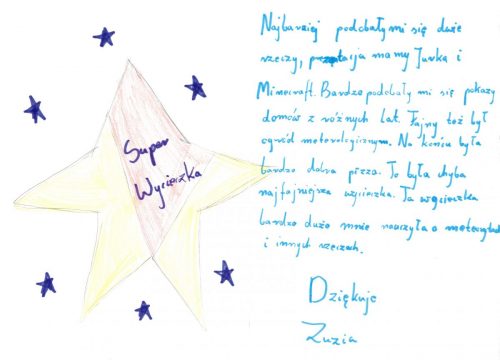 Super
Wycieczka
Najbardziej podobały mi się dwie
rzeczy, mamy Jurka i
Minecraft. Bardzo podobały mi się pokazy
domów z różnych lat. Fajny też był
ogród meteorologicznym. Na końcu była
bardzo dobra pizza. To była chyba
najfajniejsza wycieczka. Ta wycieczka
bardzo dużo mnie nauczyła o
i innych rzeczach.
Dziękuje
Zuzia